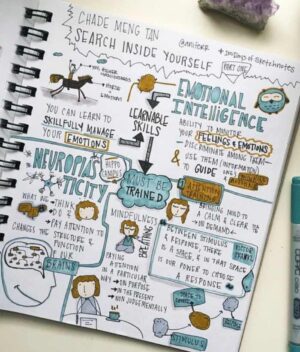 CHADE MENG TAN
SEARCH INSIDE YOURSELF
PART ONE
YOU
HORSE
= EMOTIONS
YOU CAN LEARN TO
SKILLFULLY MANAGE
YOUR EMOTIONS
LEARNABLE
SKILLS
EMOTIONAL
INTELLIGENCE
ABILITY TO MONITOR
YOUR FEELINGS & EMOTIONS
DISCRIMINATE AMONG THEM
& USE THEM INFORMATION
TO GUIDE
NEUROPLAS
TICITY
HIPPO
CAMPUS
MUST BE
TRAINED
ATTENTION
TRAINING
WHAT WE → THINK
→ DO &
→ PAY ATTENTION TO
CHANGES THE STRUCTURE &
FUNCTION
OF OUR
BRAINS
MINDFULNESS
BREATHING
PAYING
ATTENTION IN
A PARTICULAR
WAY → ON PURPOSE
→ IN THE PRESENT
→ NON JUDGEMENTALLY
A CALM & CLEAR
ON DEMAND
BETWEEN STIMULUS
& RESPONSE, THERE
IS A SPACE, & IN THAT SPACE
IS OUR POWER TO CHOOSE
A RESPONSE
STIMULUS